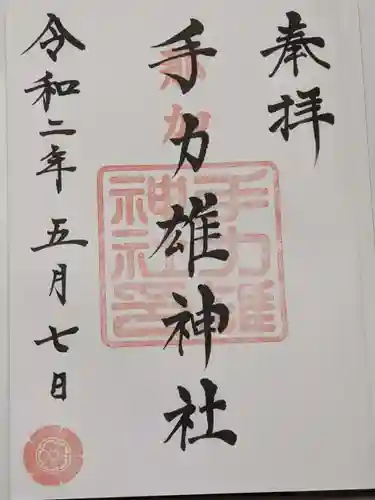 奉拝
手力雄神社
令和二年五月七日
手力雄
神社